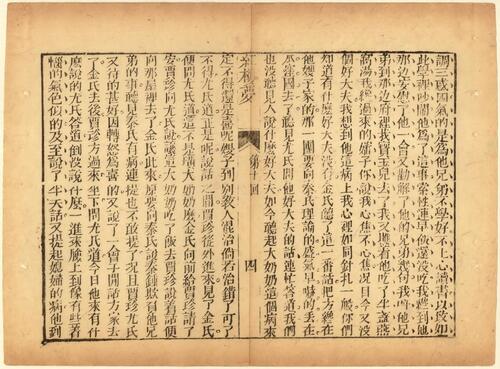 調三或四氣的是爲他兄弟不學好不上心讀書以致如
此學裡吵鬧他爲了這事索性連早飯還沒吃我纔到他
那边安慰了他一會又勸解了他的兄弟幾句我叫他兄
弟到那邊府裡找寶玉兒去了我又瞧着他吃了半盞燕
窩湯我纔過來的嬸子你說我心焦不心焦况目今又沒
個好大夫我想到他這病上我心裡如同針扎一般你們
知道有什麽好大夫沒有金氏聽了這一番話把方纔在
他嫂子家的那一團要向秦氏理論的盛氣早嚇的丟在
爪窪國去了聽見尤氏問他好大夫的話連忙答道我們
也沒聽見人說什麽好大夫如今聽起大奶奶這個病來
紅樓夢
第十回
四
定不得還是喜呢嫂子别教人混治倘若治錯了可了
不得尤氏道正是呢說話之間賈珍從外進來見了金氏
便問尤氏道這不是璜大奶奶麽金氏向前給賈珍請了
安賈珍向尤氏說讓這大奶奶吃了飯去賈珍說着話便
向那屋裡去了金氏此來原要向秦氏說秦鍾欺負他兄
弟的事聽見秦氏有病連提也不敢提了况且賈珍尤氏
又待的甚好因轉怒爲喜的又說了一會子閒話方家去
了金氏去後賈珍方過來坐下問尤氏道今日他來有什
麽說的尤氏答道倒沒說什麽一進來臉上到像有些著
惱的氣色似的及至說了半天話又提起媳婦的病他到